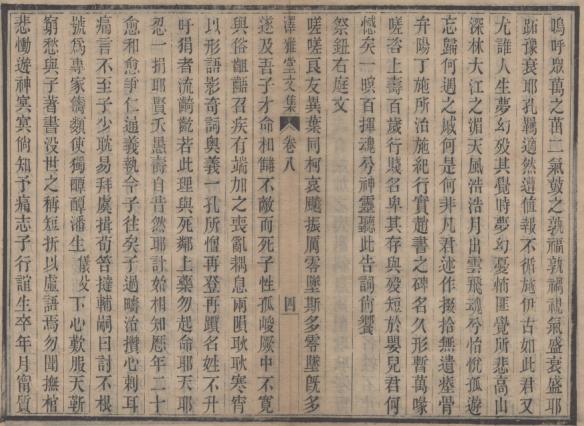 嗚呼眾萬之苗二氣鼓之孰福孰禍視氣盛衰盛耶
跖豫衰耶孔羈適然遭値報不循施伊古如此君又
尤誰人生夢幻歿其覺時夢幻憂悄匪覺所悲高山
深林大江之湄天風浩浩月出雲飛魂兮怡悅孤遊
忘歸何遇之戚何是何非凡君述作掇拾無遺瘞骨
弁陽丁施所治施紀行實趙書之碑名久形暫萬喙
嗟咨上壽百歲行賤名卑其存與歿短於嬰兒君何
憾矣一暝百揮魂兮神靈聽此告詞尚饗
祭鈕右庭文
嗟嗟良友異葉同柯哀飇振厲零墜斯多零墜既多
澤雅堂文集 卷八 四
遂及吾子才命相讎不敵而死子性孤峻厥中不寬
與俗齟齬召疾有端加之喪亂耦息兩隕耿耿寒宵
以形語影奇詞奧義一孔所憎再登再躓名姓不升
吁狷者流齮齕若此理與死鄰上藥勿起命耶天耶
忍一捐耶賢夭愚壽自昔然耶計始相知歷年二十
愈和愈爭仁通義執令子往矣子過疇治攢心刺耳
痛言不至子少耽易拜虞揖荀答撻輔嗣曰討不根
號爲專家儔類使獨醰醰潘生儀父下心歎服天靳
窮愁與子著書沒世之稱短折以虛語焉勿聞撫棺
悲慟遊神冥冥倘知予痛志子行誼生卒年月甯質